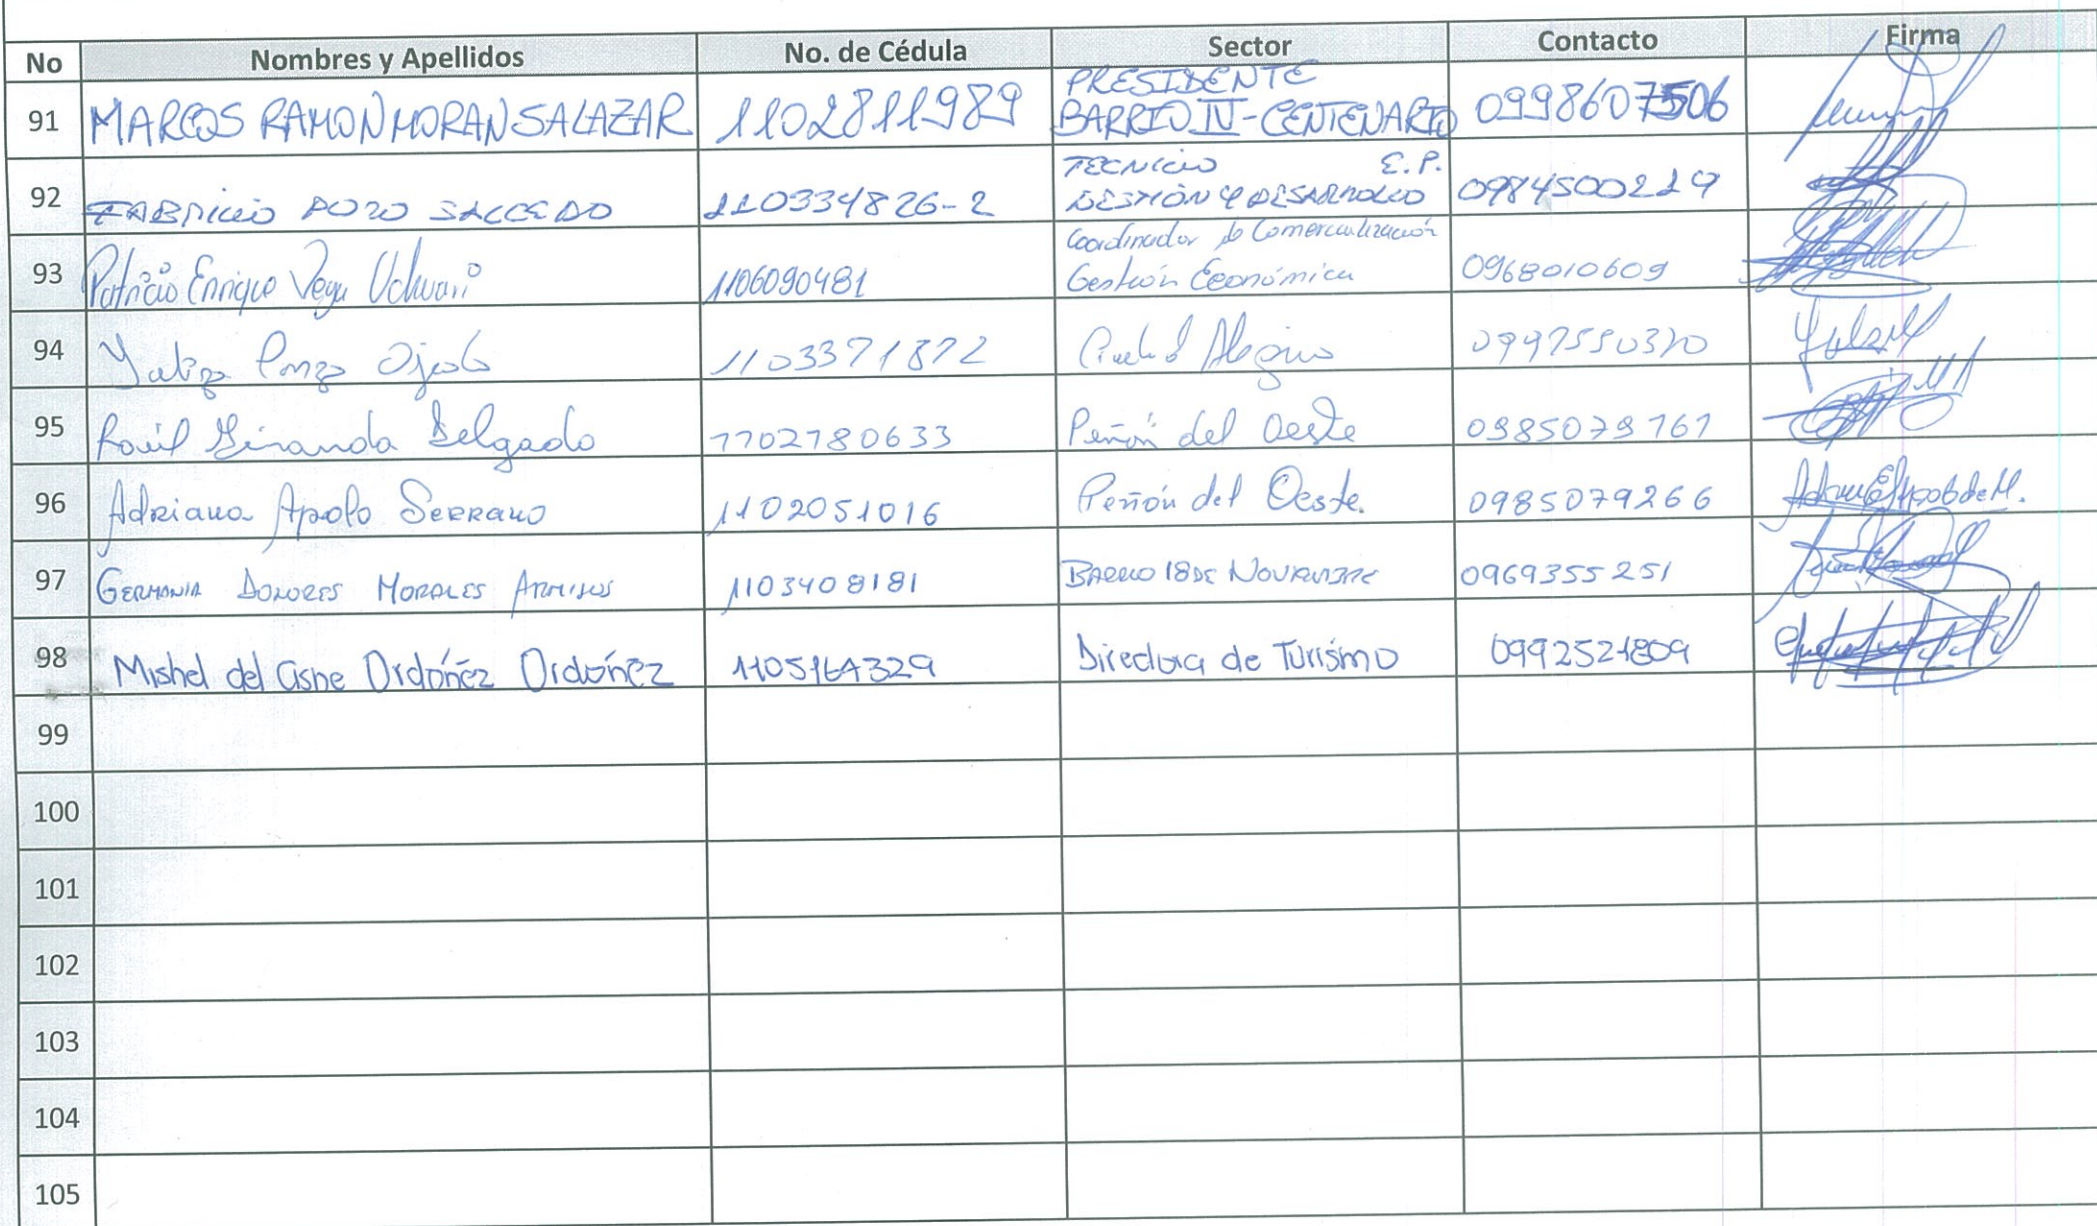 No Nombres y Apellidos No. de Cédula Sector Contacto Firma
91 MARCOS RAMON MORAN SALAZAR 1102811989 PRESIDENTE BARRIO IV-CENTENARIO 0998607506
92 FABRICIO POZO SALCEDO 110334826-2 TECNICO E.P. GESTIÓN Y DESARROLLO 0984500219
93 Patricio Enrique Vega 1106090481 Coordinador de Comercialización Gestión Económica 0968010609
94 Ojeda 1103371872
95 Raúl Miranda Delgado 1102780633 Peñón del Oeste 0985079767
96 Adriana Apolo Serrano 1102051016 Peñón del Oeste. 0985079266
97 GERMANIA DOLORES MORALES ARMIJOS 1103408181 BARRIO 18 DE NOVIEMBRE 0969355251
98 Mishel del Cisne Ordóñez Ordóñez 1105164329 Directora de Turismo 0992521809
99
100
101
102
103
104
105